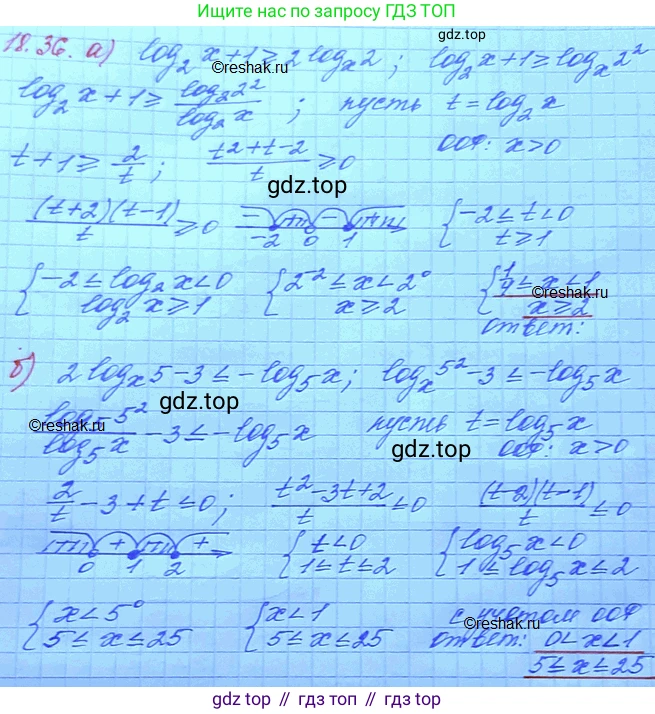 Ищите нас по запросу ГДЗ ТОП
18.36. а) log₂x+1≥2logₓ2; log₂x+1≥logₓ2²
gdz.top
©reshak.ru
log₂x+1≥ log₂2²/log₂x; пусть t=log₂x
ООФ: x>0
t+1≥ 2/t; (t²+t-2)/t ≥0
gdz.top
(t+2)(t-1)/t ≥0 - + - + -2 0 1 {-2≤t<0 t≥1
{-2≤log₂x<0 log₂x≥1 {2⁻²≤x<2⁰ x≥2 {1/4≤x<1 x≥2
©reshak.ru
ответ:
б) 2logₓ5-3≤-log₅x; logₓ5²-3≤-log₅x
gdz.top
©reshak.ru
log₅5²/log₅x -3≤-log₅x пусть t=log₅x
gdz.top
ООФ: x>0
2/t -3+t≤0; (t²-3t+2)/t ≤0 (t-2)(t-1)/t ≤0
- + - + 0 1 2 {t<0 1≤t≤2 {log₅x<0 1≤log₅x≤2
{x<5⁰ 5≤x≤25 {x<1 5≤x≤25 с учетом ООФ
ответ: 0<x<1
©reshak.ru
5≤x≤25
gdz.top // гдз топ // gdz.top // гдз топ